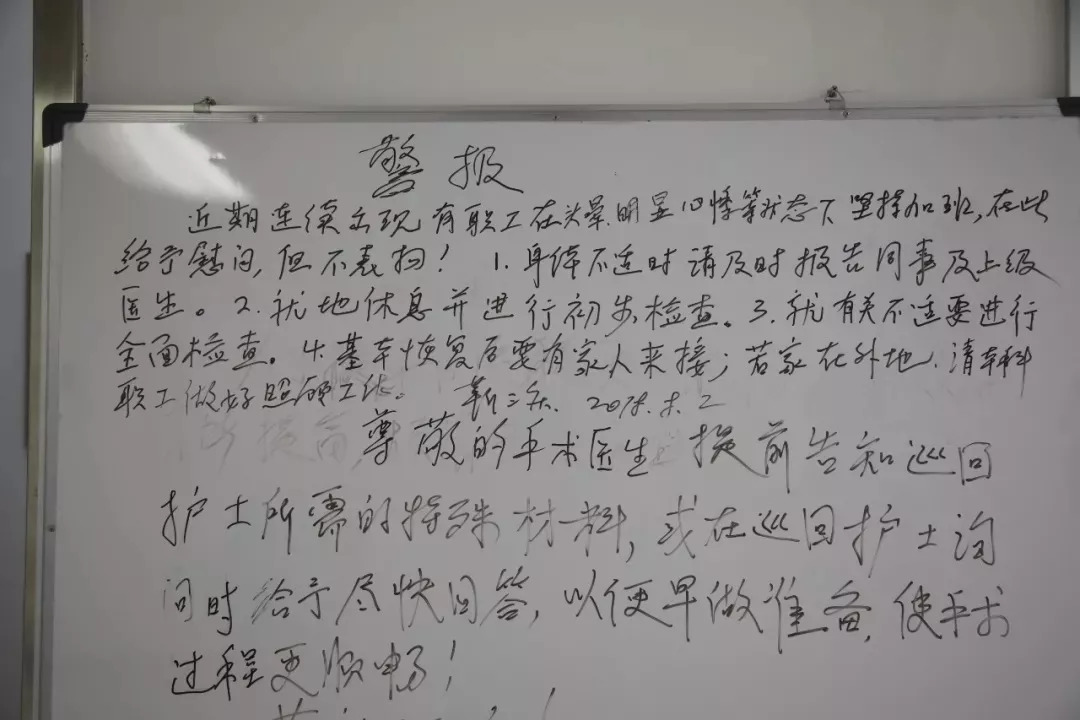 警报
近期连续出现有职工在头晕、明显心悸等状态下坚持加班,在此
给予慰问,但不表扬! 1.身体不适时请及时报告同事及上级
医生。2.就地休息并进行初步检查。3.就有关不适要进行
全面检查。4.基本恢复后要有家人来接;若家在外地,请本科
职工做好照顾工作。 靳三庆. 2018. 2
尊敬的手术医生 提前告知巡回
护士所需的特殊材料,或在巡回护士询
问时给予尽快回答,以便早做准备,使手术
过程更顺畅!